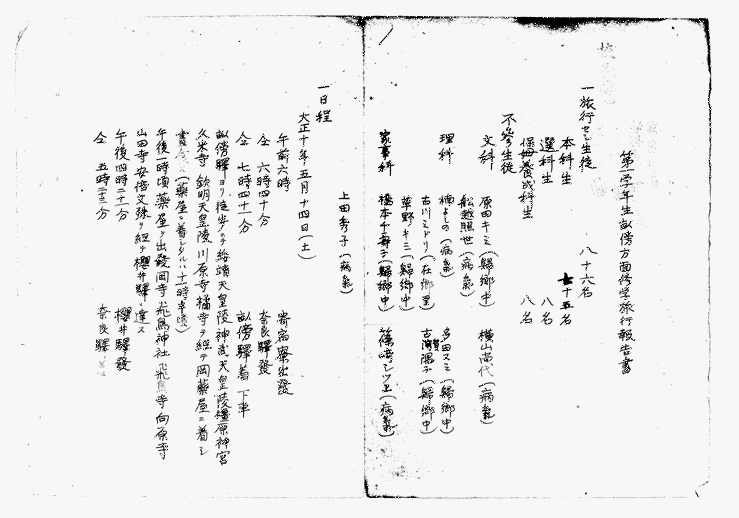 第一学年生畝傍方面修学旅行報告書
一旅行セシ生徒 八十六名
本科生 七十五名
選科生 八名
保姆養成科生 八名
不參生徒
文科 原田キミ(歸鄉中) 横山高代(病氣)
船越照世(病氣)
理科 楠よしの(病氣) 多田スミ(歸鄉中)
古川ミドリ(在鄉里) 古賀陽子(歸鄉中)
草野キミ(歸鄉中)
家事科 橋本千壽子(歸鄉中) 篠崎シツヱ(病氣)
上田秀子(病氣)
一日程
大正十年五月十四日(土)
午前六時 寄宿寮出發
仝 六時四十分 奈良驛發
仝 七時四十一分 畝傍驛着下車
畝傍驛ヨリ徒歩ノテ綏靖天皇陵神武天皇陵橿原神宮
久米寺 欽明天皇陵川原寺橘寺ヲ経テ岡藥屋ニ着シ
晝食(藥屋ニ着シタルハ十一時半頃)
午後一時頃藥屋ヲ出發岡寺飛鳥神社飛鳥寺向原寺
山田寺安倍文殊ヲ経テ櫻井驛ニ達ス
午後四時二十一分 櫻井驛發
仝 五時二十二分 奈良驛着